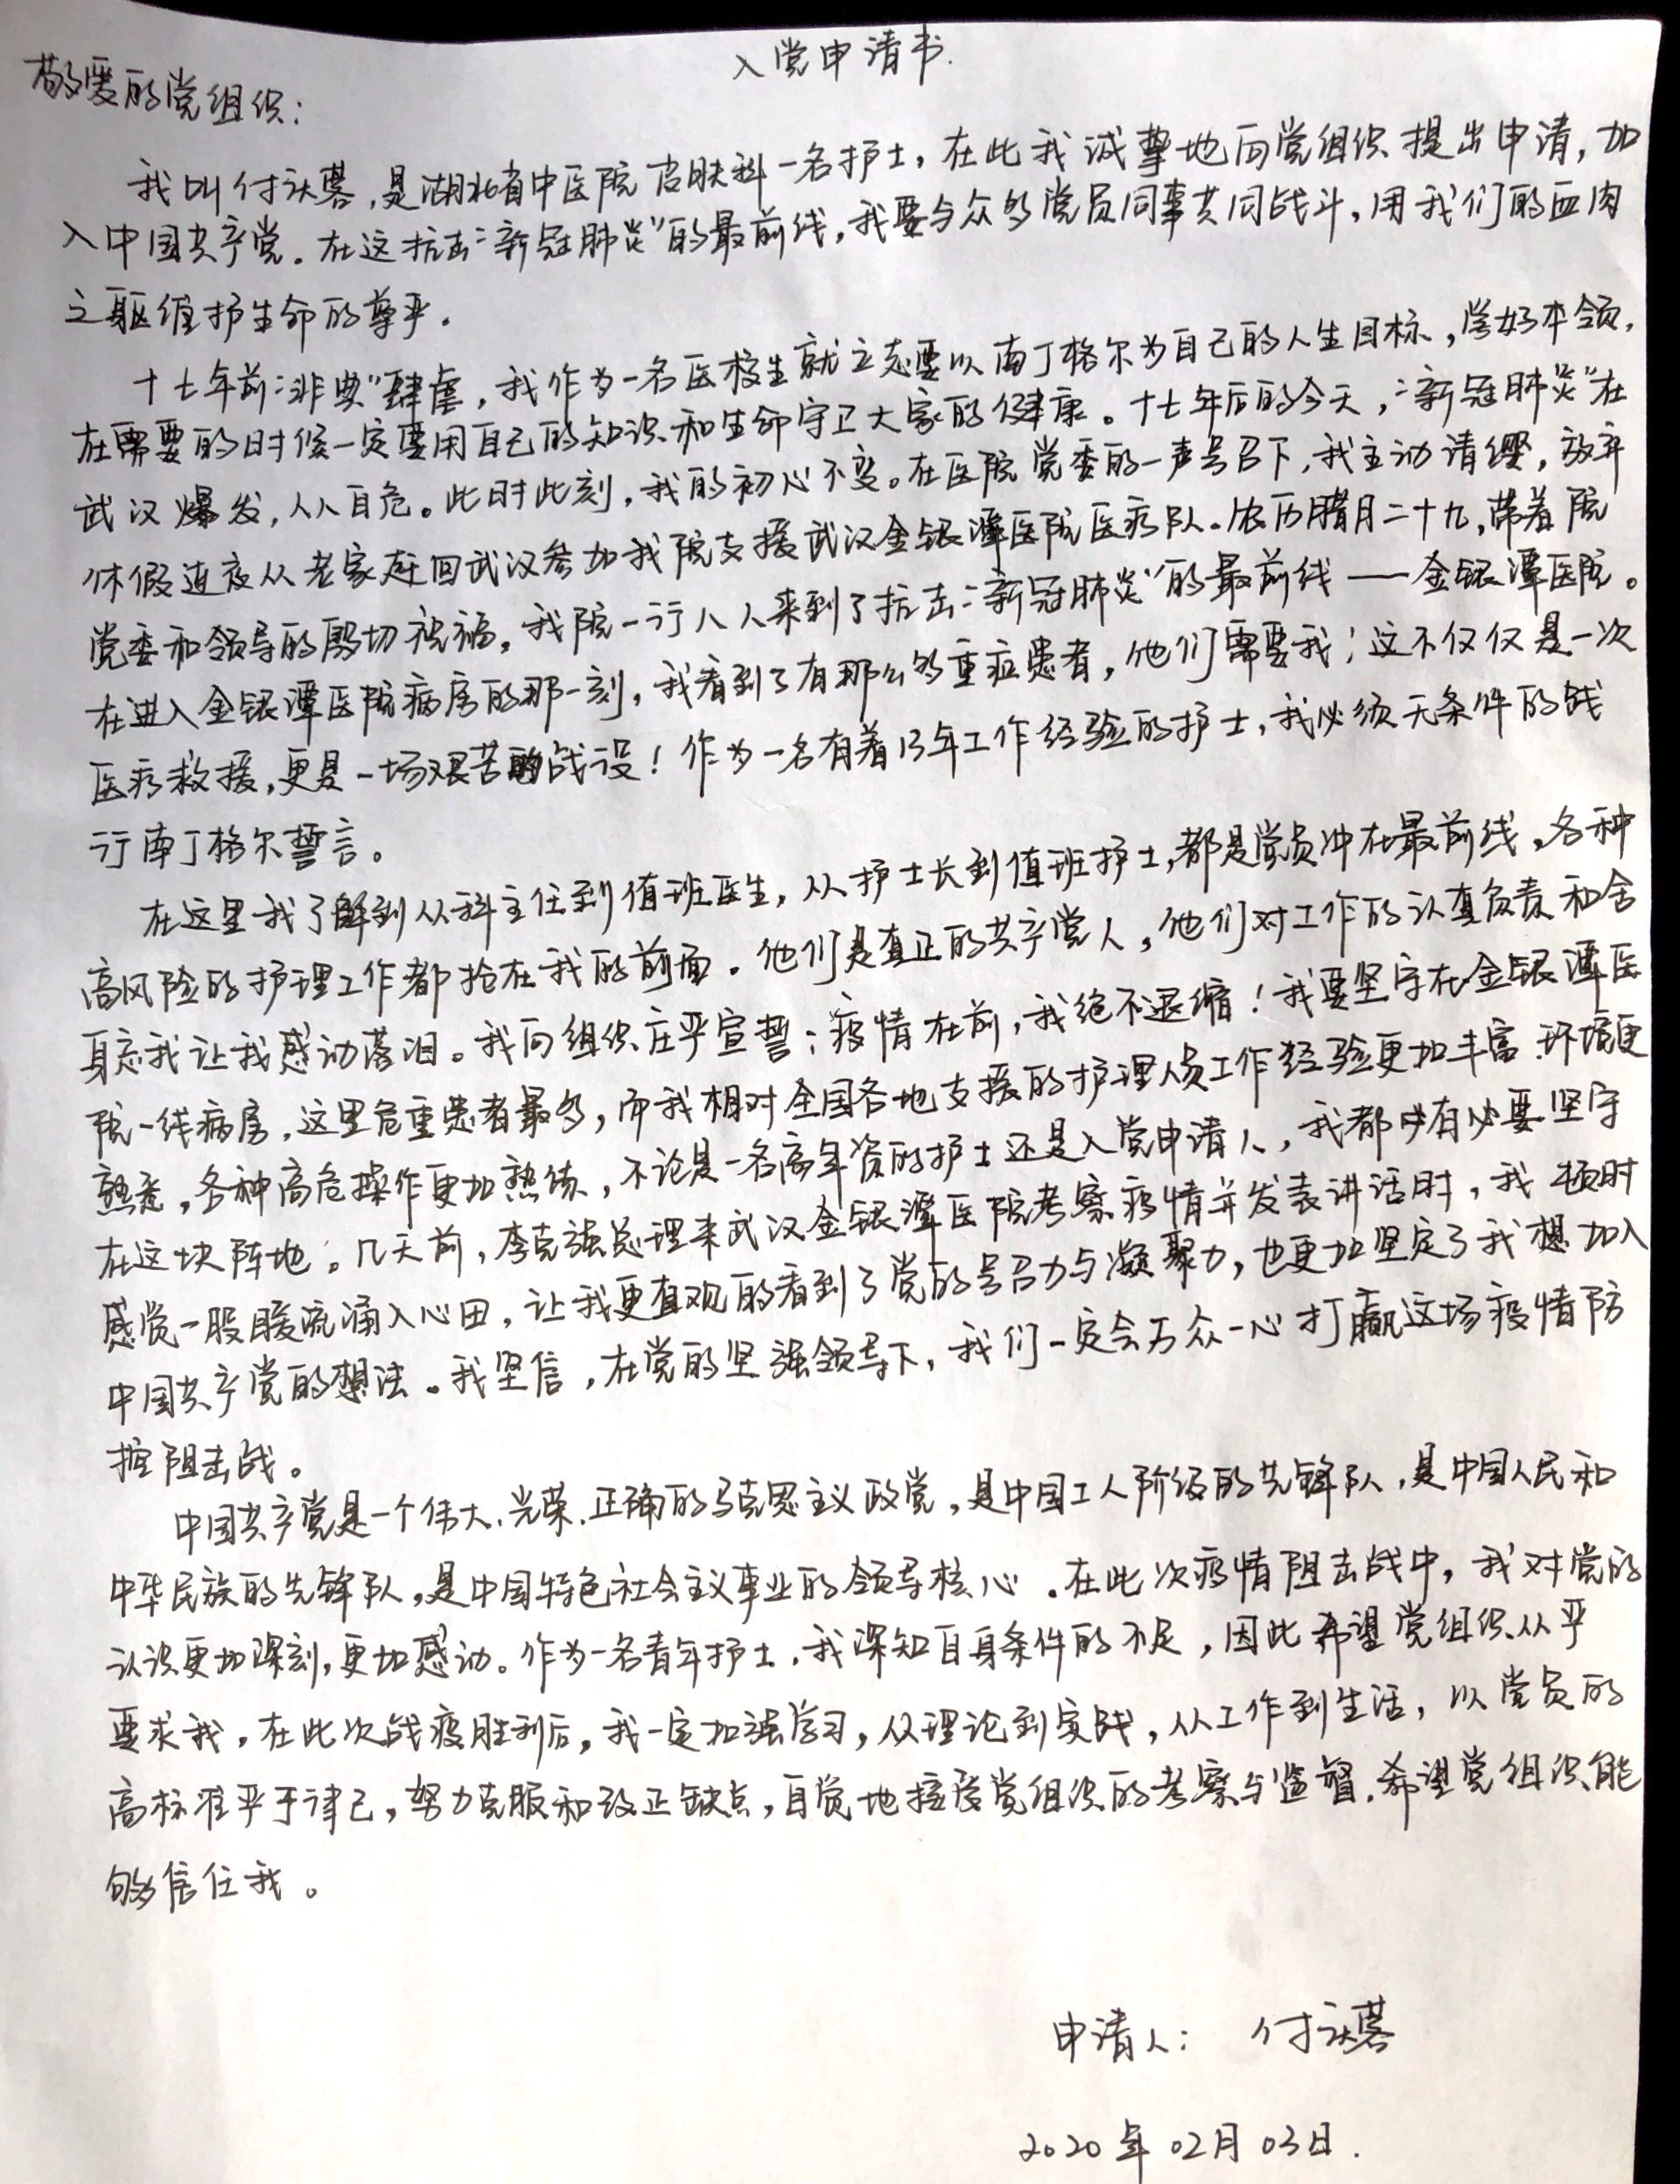 入党申请书.
敬爱的党组织：
我叫付沃蓉,是湖北省中医院皮肤科一名护士，在此我诚挚地向党组织提出申请，加
入中国共产党。在这抗击“新冠肺炎”的最前线，我要与众多党员同事共同战斗，用我们的血肉
之躯维护生命的尊严。
十七年前“非典”肆虐，我作为一名医校生就立志要以南丁格尔为自己的人生目标，学好本领，
在需要的时候一定要用自己的知识和生命守卫大家的健康。十七年后的今天，“新冠肺炎”在
武汉爆发，人人自危。此时此刻，我的初心不变。在医院党委的一声号召下，我主动请缨，放弃
休假连夜从老家赶回武汉参加我院支援武汉金银潭医院医疗队。农历腊月二十九，带着院
党委和领导的殷切祝福，我院一行八人来到了抗击“新冠肺炎”的最前线——金银潭医院。
在进入金银潭医院病房的那一刻，我看到了有那么多重症患者，他们需要我；这不仅仅是一次
医疗救援，更是一场艰苦的战役！作为一名有着13年工作经验的护士，我必须无条件的践
行南丁格尔誓言。
在这里我了解到从科主任到值班医生，从护士长到值班护士，都是党员冲在最前线，各种
高风险的护理工作都抢在我的前面。他们是真正的共产党人，他们对工作的认真负责和舍
身忘我让我感动落泪。我向组织庄严宣誓：疫情在前，我绝不退缩！我要坚守在金银潭医
院一线病房，这里危重患者最多，而我相对全国各地支援的护理人员工作经验更加丰富.环境更
熟悉，各种高危操作更加熟练，不论是一名高年资的护士还是入党申请人，我都有必要坚守
在这块阵地。几天前，李克强总理来武汉金银潭医院考察疫情并发表讲话时，我顿时
感觉一股暖流涌入心田，让我更直观的看到了党的号召力与凝聚力，也更加坚定了我想加入
中国共产党的想法。我坚信，在党的坚强领导下，我们一定会万众一心打赢这场疫情防
控阻击战。
中国共产党是一个伟大、光荣、正确的马克思主义政党，是中国工人阶级的先锋队，是中国人民和
中华民族的先锋队，是中国特色社会主义事业的领导核心。在此次疫情阻击战中，我对党的
认识更加深刻，更加感动。作为一名青年护士，我深知自身条件的不足，因此希望党组织从严
要求我，在此次战疫胜利后，我一定加强学习，从理论到实践，从工作到生活，以党员的
高标准严于律己，努力克服和改正缺点，自觉地接受党组织的考察与监督.希望党组织能
够信任我。
申请人： 付沃蓉
2020年02月03日.